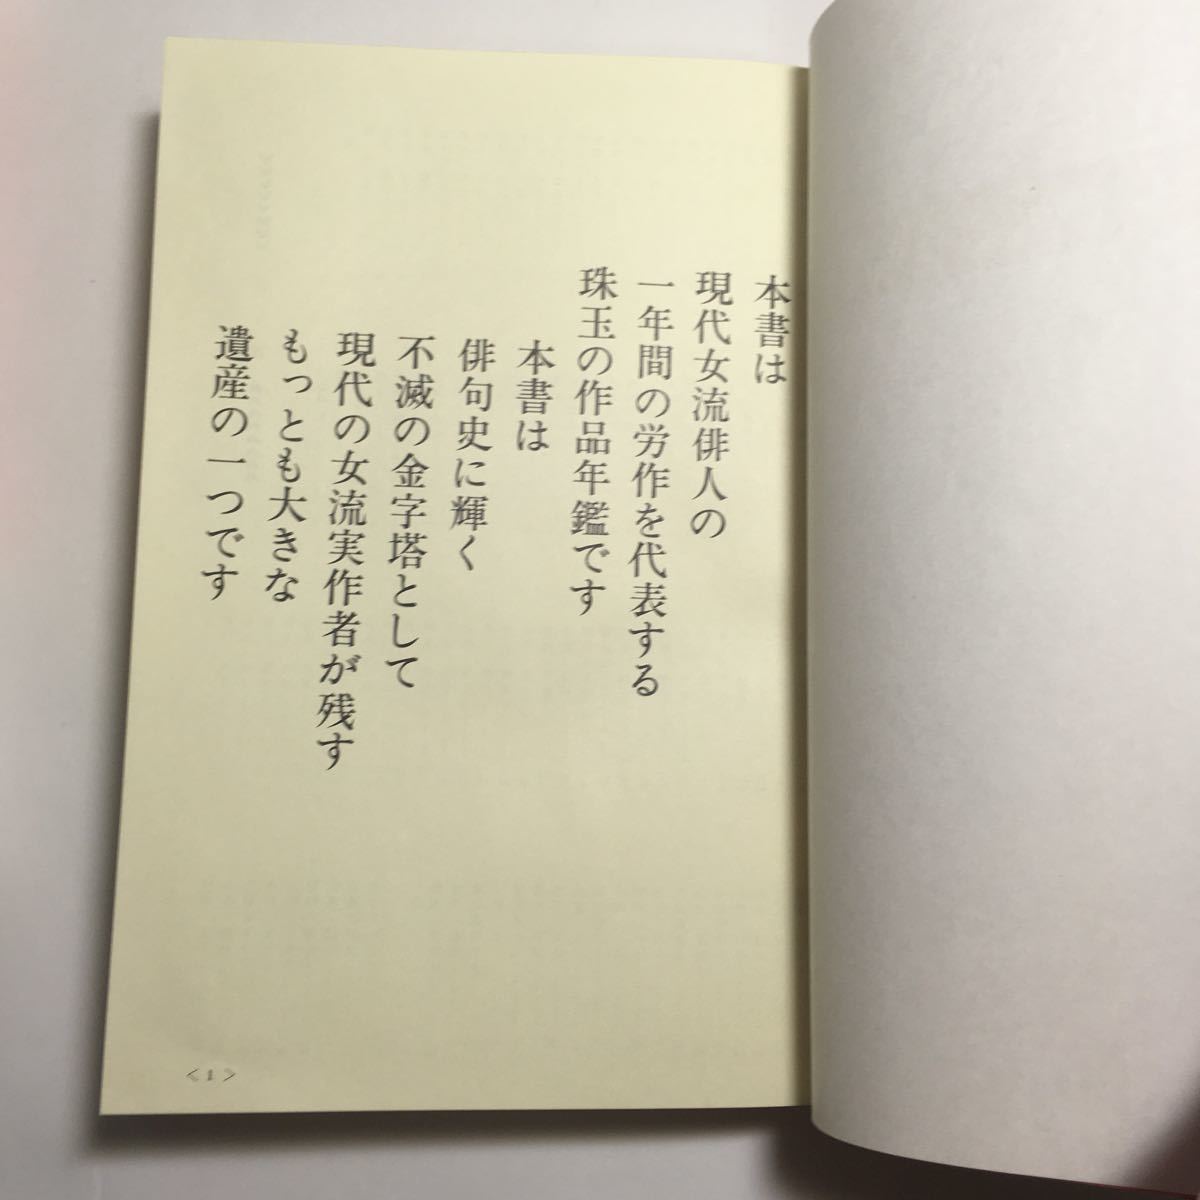 本書は
現代女流俳人の
一年間の労作を代表する
珠玉の作品年鑑です
本書は
俳句史に輝く
不滅の金字塔として
現代の女流実作者が残す
もっとも大きな
遺産の一つです
<1>